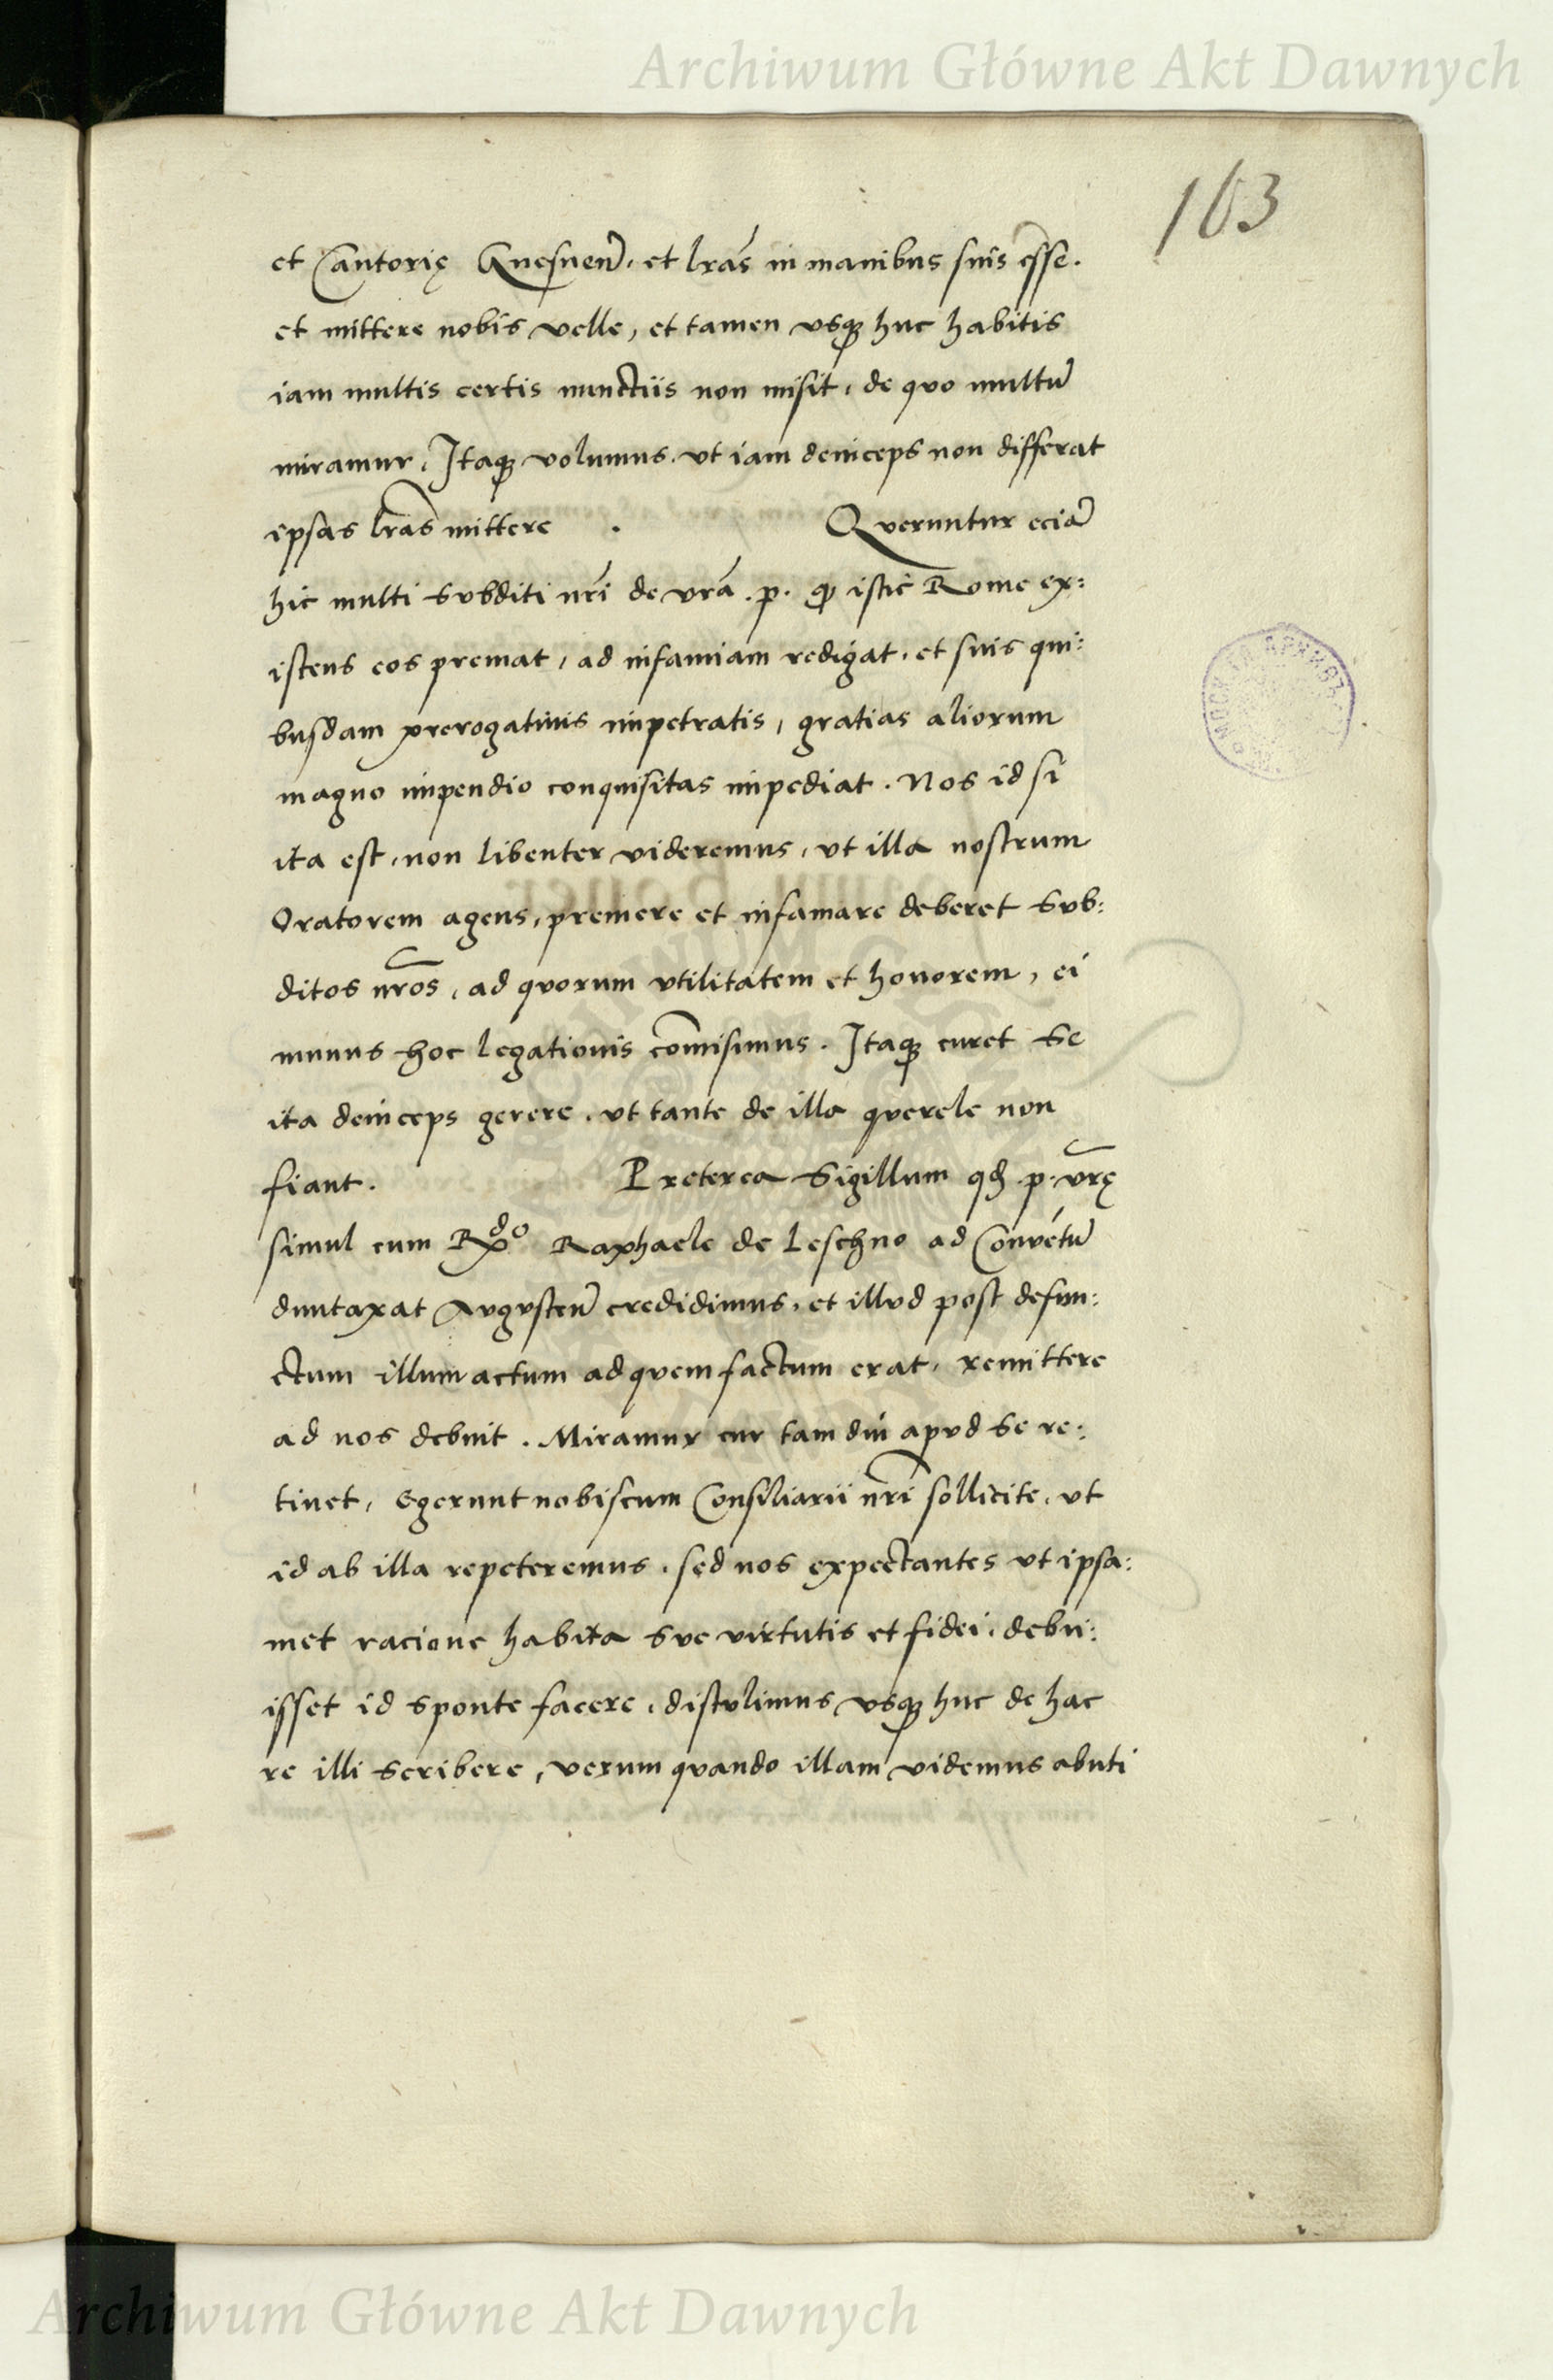 Archiwum Główne Akt Dawnych
163
et Cantorię Gnesnen̄. et lrās in manibus suis esse.
et mittere nobis velle, et tamen vsqȝ huc habitis
iam multis certis nunctiis non misit, de quo multū
miramur. Itaqȝ volumus. vt iam deinceps non differat
ipsas lrās mittere . Queruntur eciā
hic multi subditi nrī de vrā . p. qȝ istic Rome ex:
istens eos premat, ad infamiam redigat, et suis qui:
busdam prerogatiuis impetratis, gratias aliorum
magno impendio conquisitas impediat. Nos id si
ita est, non libenter videremus, vt illa nostrum
Oratorem agens, premere et infamare deberet sub:
ditos nrōs, ad quorum vtilitatem et honorem, ei
munus hoc legationis com̄isimus. Itaqȝ curet se
ita deinceps gerere. vt tante de illa querele non
fiant. Preterea sigillum qđ .p. vrę
simul cum Rdo Raphaele de Leschno ad Convētū
duntaxat Augusten̄ credidimus, et illud post defun:
ctum illum actum ad quem factum erat, remittere
ad nos debuit. Miramur cur tam diu apud se re:
tinet, Egerunt nobiscum Consiliarii nrī sollicite, vt
id ab illa repeteremus. sed nos expectantes vt ipsa:
met racione habita sue virtutis et fidei, debu:
isset id sponte facere, distulimus vsqȝ huc de hac
re illi scribere, verum quando illam videmus abuti
Archiwum Główne Akt Dawnych